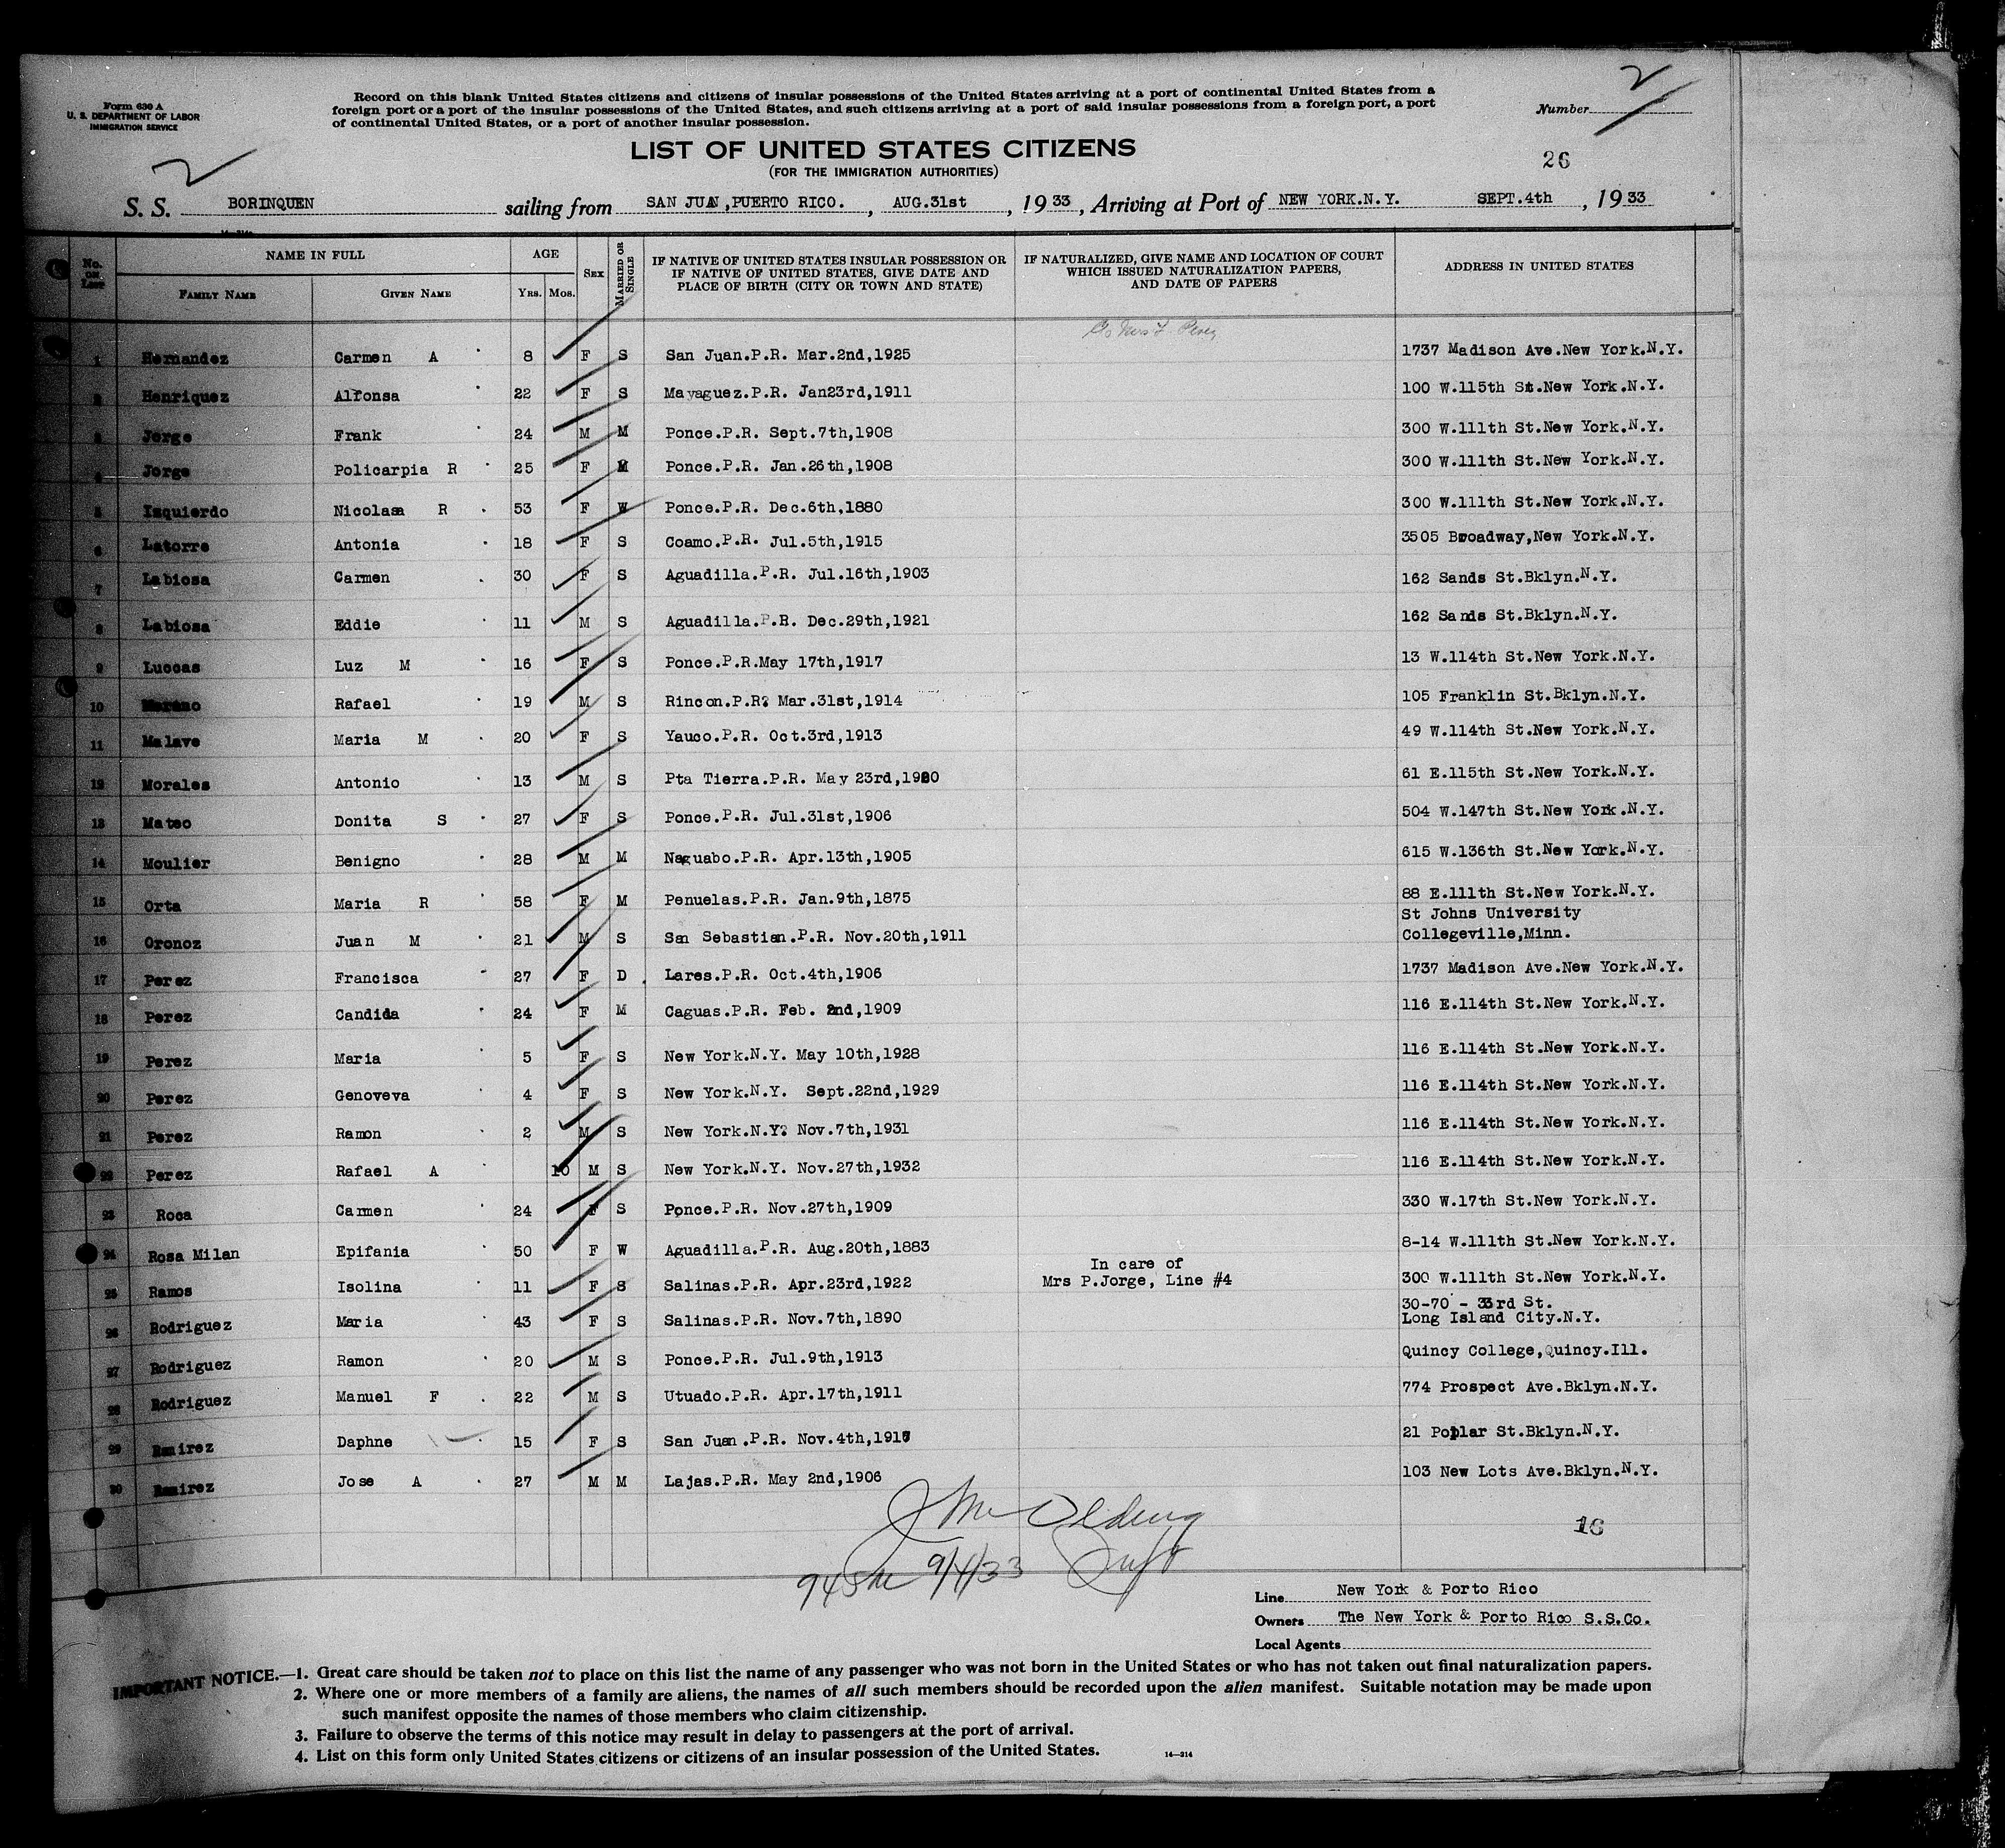 Form 630 A
U. S. DEPARTMENT OF LABOR
IMMIGRATION SERVICE
Record on this blank United States citizens and citizens of insular possessions of the United States arriving at a port of continental United States from a
foreign port or a port of the insular possessions of the United States, and such citizens arriving at a port of said insular possessions from a foreign port, a port
of continental United States, or a port of another insular possession.
Number 2
LIST OF UNITED STATES CITIZENS
(FOR THE IMMIGRATION AUTHORITIES)
26
2
S. S. BORINQUEN sailing from SAN JUAN,PUERTO RICO. , AUG.31st , 1933 , Arriving at Port of NEW YORK.N.Y. SEPT.4th , 1933
No. on List NAME IN FULL AGE Sex Married or Single IF NATIVE OF UNITED STATES INSULAR POSSESSION OR IF NATIVE OF UNITED STATES, GIVE DATE AND PLACE OF BIRTH (CITY OR TOWN AND STATE) IF NATURALIZED, GIVE NAME AND LOCATION OF COURT WHICH ISSUED NATURALIZATION PAPERS, AND DATE OF PAPERS ADDRESS IN UNITED STATES
Family Name Given Name Yrs. Mos.
c/o Mrs F Perez
1 Hernandez Carmen A 8 F S San Juan.P.R. Mar.2nd,1925 1737 Madison Ave.New York.N.Y.
2 Henriquez Alfonsa 22 F S Mayaguez.P.R. Jan23rd,1911 100 W.115th St.New York.N.Y.
3 Jorge Frank 24 M M Ponce.P.R. Sept.7th,1908 300 W.111th St.New York.N.Y.
4 Jorge Policarpia R 25 F M Ponce.P.R. Jan.26th,1908 300 W.111th St.New York.N.Y.
5 Izquierdo Nicolasa R 53 F W Ponce.P.R. Dec.6th,1880 300 W.111th St.New York.N.Y.
6 Latorre Antonia 18 F S Coamo.P.R. Jul.5th,1915 3505 Broadway,New York.N.Y.
7 Labiosa Carmen 30 F S Aguadilla.P.R. Jul.16th,1903 162 Sands St.Bklyn.N.Y.
8 Labiosa Eddie 11 M S Aguadilla.P.R. Dec.29th,1921 162 Sands St.Bklyn.N.Y.
9 Luccas Luz M 16 F S Ponce.P.R.May 17th,1917 13 W.114th St.New York.N.Y.
10 Rafael 19 M S Rincon.P.R? Mar.31st,1914 105 Franklin St.Bklyn.N.Y.
11 Malave Maria M 20 F S Yauco.P.R. Oct.3rd,1913 49 W.114th St.New York.N.Y.
12 Morales Antonio 13 M S Pta Tierra.P.R. May 23rd,1920 61 E.115th St.New York.N.Y.
13 Mateo Donita S 27 F S Ponce.P.R. Jul.31st,1906 504 W.147th St.New York.N.Y.
14 Moulier Benigno 28 M M Naguabo.P.R. Apr.13th,1905 615 W.136th St.New York.N.Y.
15 Orta Maria R 58 F M Penuelas.P.R. Jan.9th,1875 88 E.111th St.New York.N.Y.
St Johns University
16 Oronoz Juan M 21 M S San Sebastian.P.R. Nov.20th,1911 Collegeville,Minn.
17 Perez Francisca 27 F D Lares.P.R. Oct.4th,1906 1737 Madison Ave.New York.N.Y.
18 Perez Candida 24 F M Caguas.P.R. Feb. 2nd,1909 116 E.114th St.New York.N.Y.
19 Perez Maria 5 F S New York.N.Y. May 10th,1928 116 E.114th St.New York.N.Y.
20 Perez Genoveva 4 F S New York.N.Y. Sept.22nd,1929 116 E.114th St.New York.N.Y.
21 Perez Ramon 2 M S New York.N.Y? Nov.7th,1931 116 E.114th St.New York.N.Y.
22 Perez Rafael A 10 M S New York.N.Y. Nov.27th,1932 116 E.114th St.New York.N.Y.
23 Roca Carmen 24 F S Ponce.P.R. Nov.27th,1909 330 W.17th St.New York.N.Y.
24 Rosa Milan Epifania 50 F W Aguadilla.P.R. Aug.20th,1883 8-14 W.111th St.New York.N.Y.
In care of
25 Ramos Isolina 11 F S Salinas.P.R. Apr.23rd,1922 Mrs P.Jorge, Line #4 300 W.111th St.New York.N.Y.
30-70 - 33rd St.
26 Rodriguez Maria 43 F S Salinas.P.R. Nov.7th,1890 Long Island City.N.Y.
27 Rodriguez Ramon 20 M S Ponce.P.R. Jul.9th,1913 Quincy College,Quincy.Ill.
28 Rodriguez Manuel F 22 M S Utuado.P.R. Apr.17th,1911 774 Prospect Ave.Bklyn.N.Y.
29 Ramirez Daphne 15 F S San Juan.P.R. Nov.4th,1917 21 Poplar St.Bklyn.N.Y.
30 Ramirez Jose A 27 M M Lajas.P.R. May 2nd,1906 103 New Lots Ave.Bklyn.N.Y.
16
9/4/33
Line New York & Porto Rico
Owners The New York & Porto Rico S.S.Co.
Local Agents
IMPORTANT NOTICE.—1. Great care should be taken not to place on this list the name of any passenger who was not born in the United States or who has not taken out final naturalization papers.
2. Where one or more members of a family are aliens, the names of all such members should be recorded upon the alien manifest. Suitable notation may be made upon
such manifest opposite the names of those members who claim citizenship.
3. Failure to observe the terms of this notice may result in delay to passengers at the port of arrival.
4. List on this form only United States citizens or citizens of an insular possession of the United States.
14—214